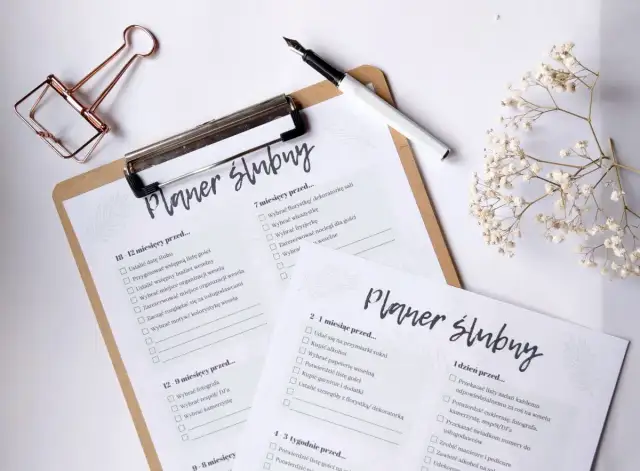 Planer ślubny
18 - 12 miesięcy przed...
Ustalić datę ślubu
Przygotować wstępną listę gości
Ustalić wstępny budżet weselny
Wybrać miejsce organizacji wesela
Zarezerwować miejsce organizacji wesela
Zacząć rozglądać się za usługodawcami
Wybrać motyw/ kolorystykę wesela
12 - 9 miesięcy przed...
Wybrać fotografa
Wybrać zespół/ DJ'a
Wybrać kamerzystę
9 - 8 miesięcy przed...
7 miesięcy przed...
Wybrać florystkę/ dekoratora sali
Wybrać wizażystkę
Wybrać fryzjerkę
Zarezerwować noclegi dla gości
Planer ślubny
2 - 1 miesiąc przed...
Udać się na przymiarki sukni
Kupić alkohol
Wybrać papeterię weselną
Potwierdzić listę gości
Kupić garnitur i dodatki
Ustalić szczegóły z florystką/ dekoratorką
4 - 3 tygodnie przed...
Potwierdzić listę gości
1 dzień przed...
Przekazać listy zadań każdemu
odpowiedzialnemu za coś na weselu
Potwierdzić cukiernię, fotografa,
kamerzystę, zespół/DJ'a
Przekazać świadkom numery do
usługodawców
Zrobić manicure i pedicure